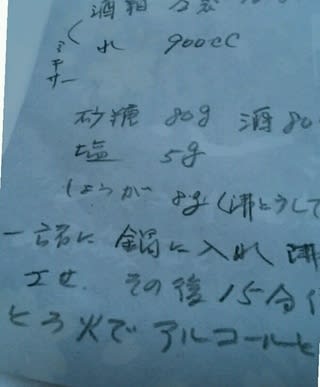 酒粕
水 900cc
ミキサー
砂糖 80g 酒 80
塩 5g
しょうが 8g (沸とうして
一諸に 鍋に入れ 沸
させ. その後 15分
とろ火で アルコールと